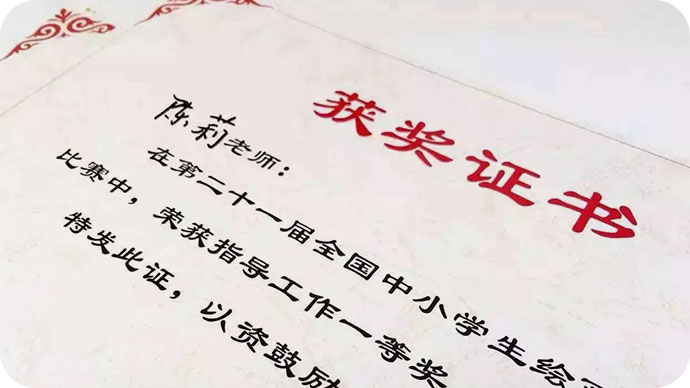 获奖证书
陈莉老师：
在第二十一届全国中小学生绘
比赛中，荣获指导工作一等奖
特发此证，以资鼓励